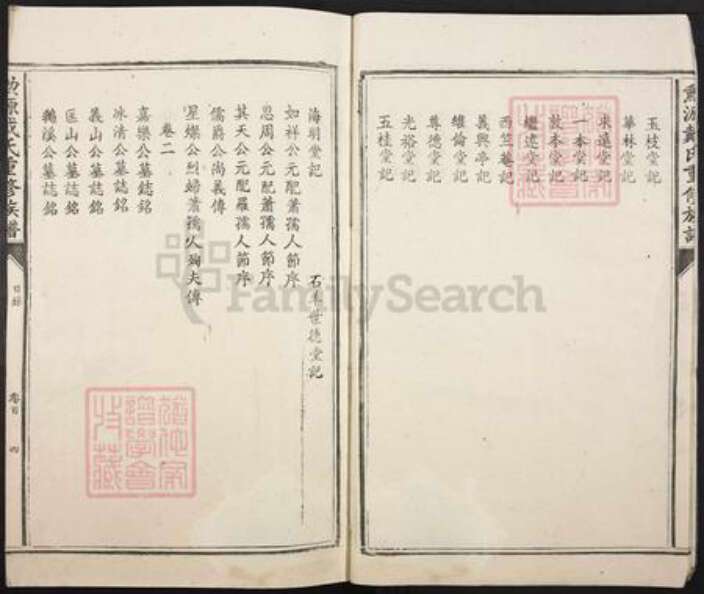 玉枝堂記
華林堂記
來遠堂記
一本堂記
敦本堂記
繼述堂記
西竺菴記
義興亭記
雍倫堂記
尊德堂記
光裕堂記
五桂堂記
海明堂記
石 世德堂記
如祥公元配蕭孺人節序
思周公元配蕭孺人節序
其天公元配羅孺人節序
儒爵公尚義傳
星燦公烈婦蕭孺人殉夫傳
卷二
嘉樂公墓誌銘
冰清公墓誌銘
義山公墓誌銘
匡山公墓誌銘
鵝溪公墓誌銘
源戴氏重修族譜
目錄
卷首 四
FamilySearch